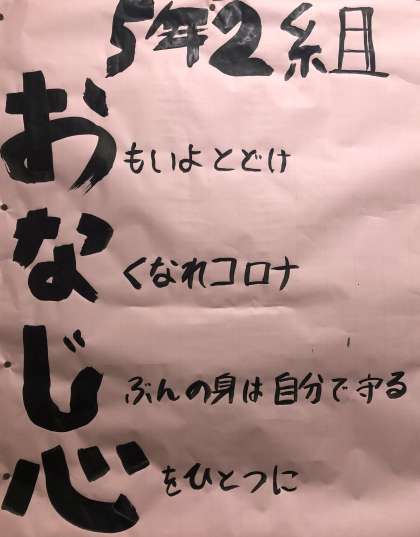 5年2組
おもいよとどけ
なくなれコロナ
じぶんの身は自分で守る
心をひとつに